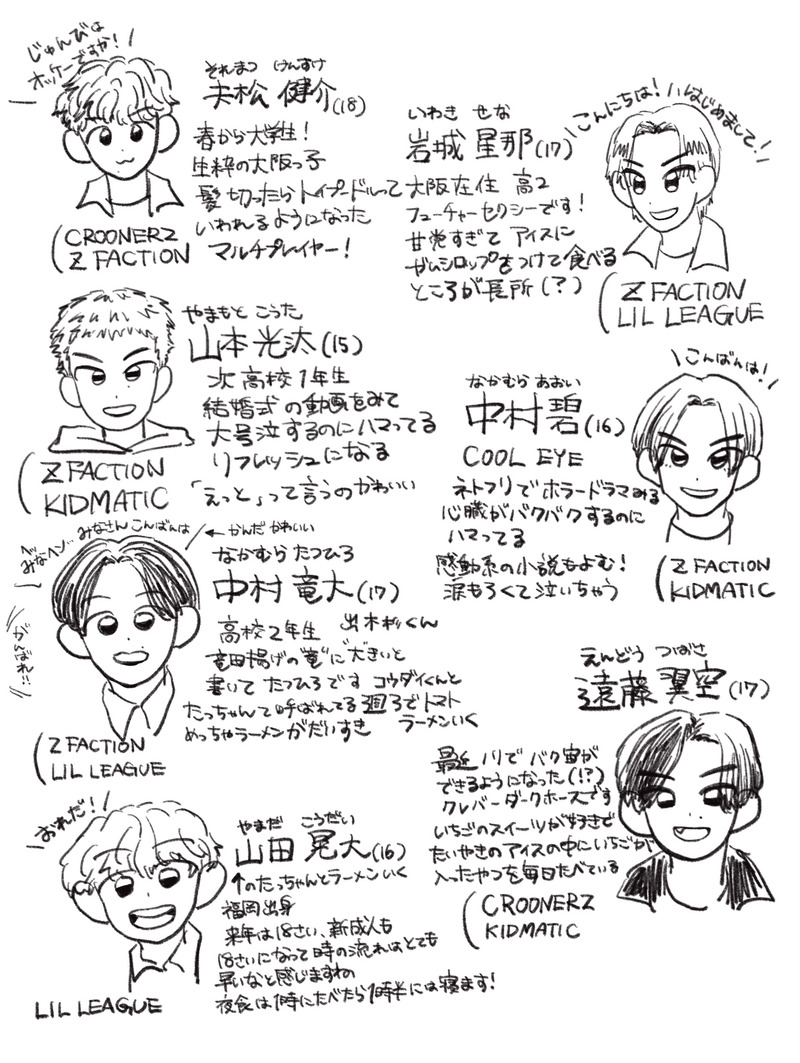 じゅんびは
オッケーですか！
それまつ けんすけ
夫松 健介(18)
春から大学生！
生粋の大阪っ子
髪切ったらトイプードルって
いわれるようになった
マルチプレイヤー！
CROONERZ
Z FACTION
こんにちは！はじめまして！
いわき せな
岩城 星那(17)
大阪在住 高2
フューチャーセクシーです！
甘党すぎて アイスに
ガムシロップをつけて食べる
ところが長所(？)
Z FACTION
LIL LEAGUE
やまもと こうた
山本光汰(15)
次 高校1年生
結婚式の動画をみて
大号泣するのにハマってる
リフレッシュになる
「えっと」って言うのかわいい
Z FACTION
KIDMATIC
こんばんは！
なかむら あおい
中村碧(16)
COOL EYE
ネトフリでホラードラマみる
心臓がバクバクするのに
ハマってる
感動系の小説もよむ！
涙もろくて泣いちゃう
Z FACTION
KIDMATIC
みなさんこんばんは
← かんだ かわいい
がんばれ!!
なかむら たつひろ
中村 竜大(17)
高校2年生 出木杉くん
竜田揚げの"竜"に"大きい"と
書いて たつひろです コウダイくんと
たっちゃんて呼ばれてる 週3でトマト
めっちゃラーメンがだいすき ラーメンいく
Z FACTION
LIL LEAGUE
えんどう つばさ
遠藤 翼空(17)
最近ノリでバク宙が
できるようになった(!?)
クレバーダークホースです
いちごのスイーツが好きで
たいやきのアイスの中にいちごが
入ったやつを毎日たべている
CROONERZ
KIDMATIC
おれだ！
やまだ こうだい
山田 晃大(16)
↑のたっちゃんとラーメンいく
福岡出身
来年は18さい、新成人も
18さいになって時の流れはとても
早いなと感じますね
夜食は1時にたべたら1時半には寝ます！
LIL LEAGUE